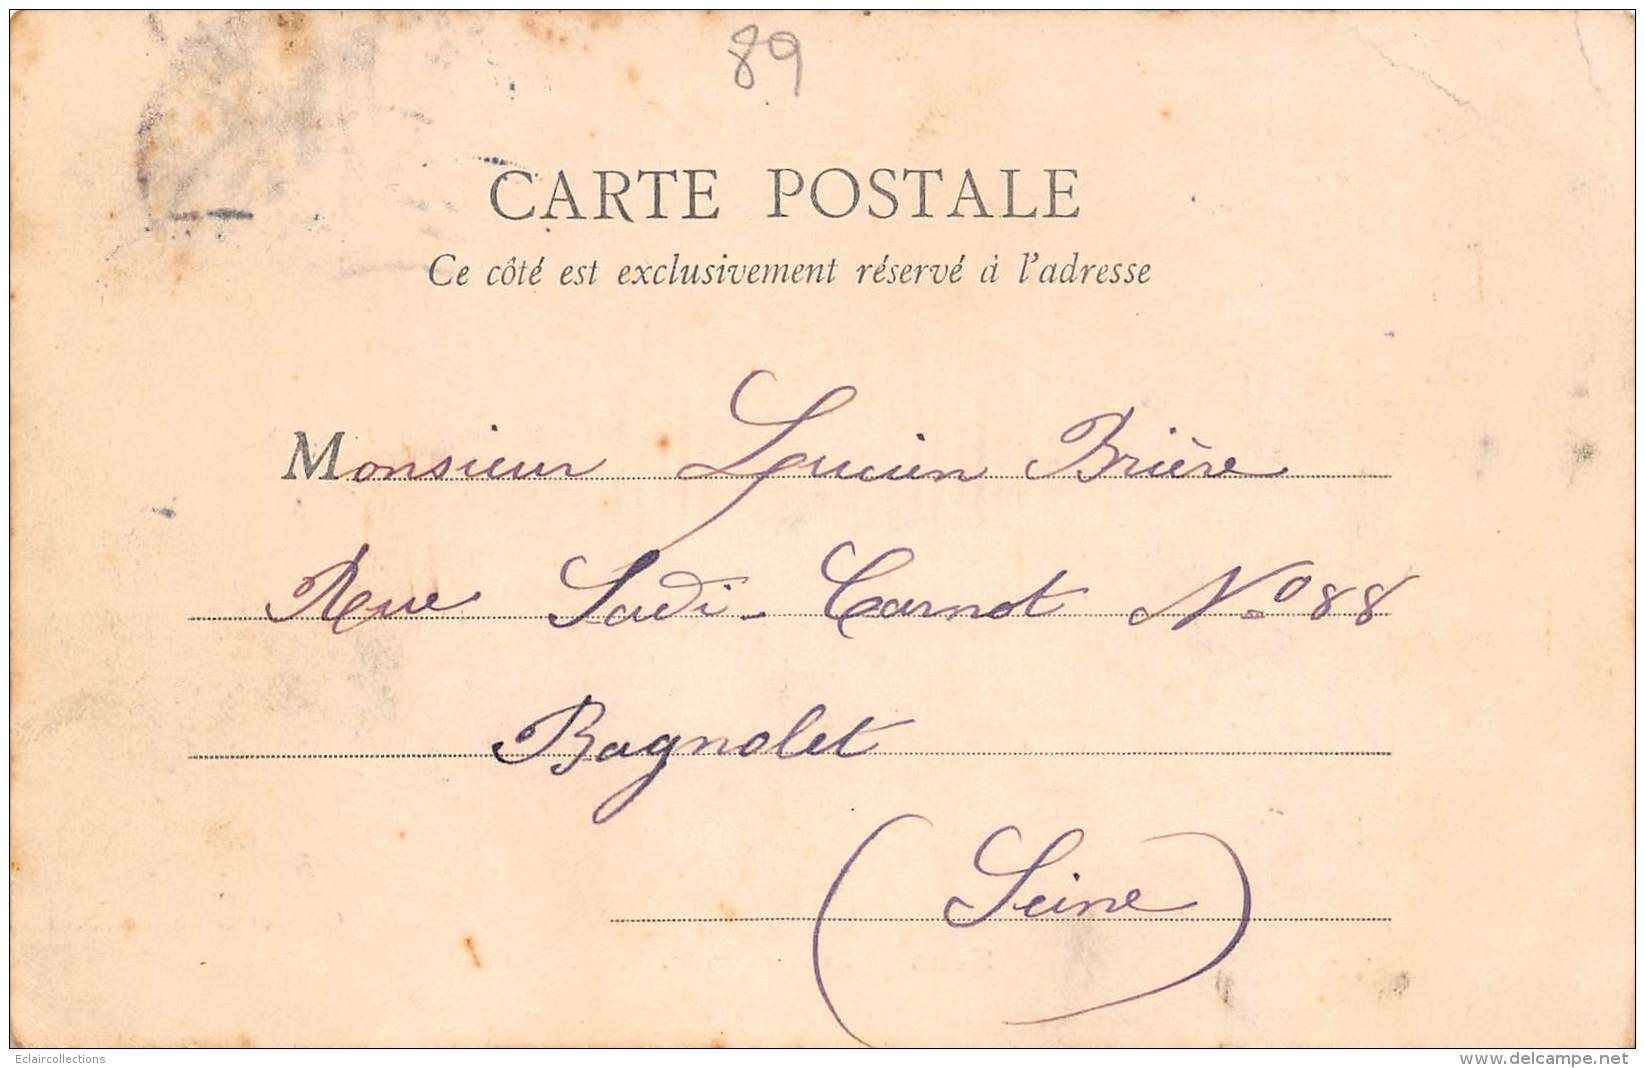 89
CARTE POSTALE
Ce côté est exclusivement réservé à l'adresse
Monsieur Lucien Brière
Rue Sadi-Carnot No 88
Bagnolet
(Seine)
Eclaircollections
www.delcampe.net